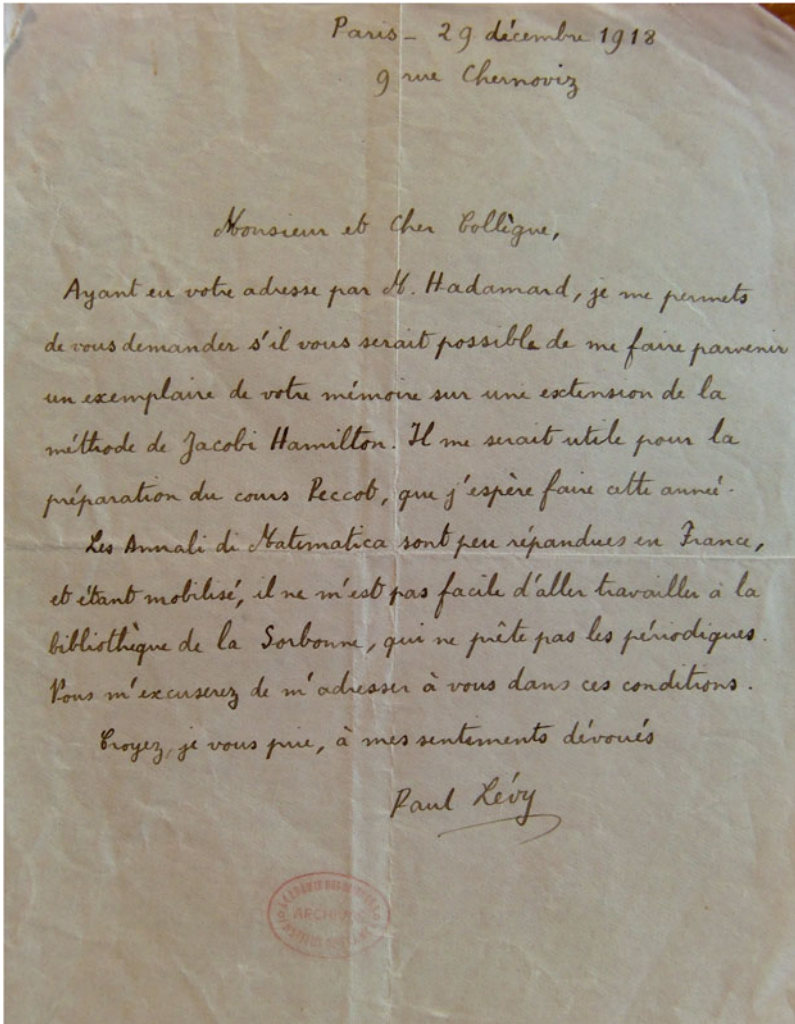 Paris - 29 décembre 1918
9 rue Chernoviz
Monsieur et Cher Collègue,
Ayant eu votre adresse par M. Hadamard, je me permets
de vous demander s'il vous serait possible de me faire parvenir
un exemplaire de votre mémoire sur une extension de la
méthode de Jacobi Hamilton. Il me serait utile pour la
préparation du cours Peccot, que j'espère faire cette année.
Les Annali di Matematica sont peu répandues en France,
et étant mobilisé, il ne m'est pas facile d'aller travailler à la
bibliothèque de la Sorbonne, qui ne prête pas les périodiques.
Vous m'excuserez de m'adresser à vous dans ces conditions.
Croyez, je vous prie, à mes sentiments dévoués
Paul Lévy
ARCHIVES